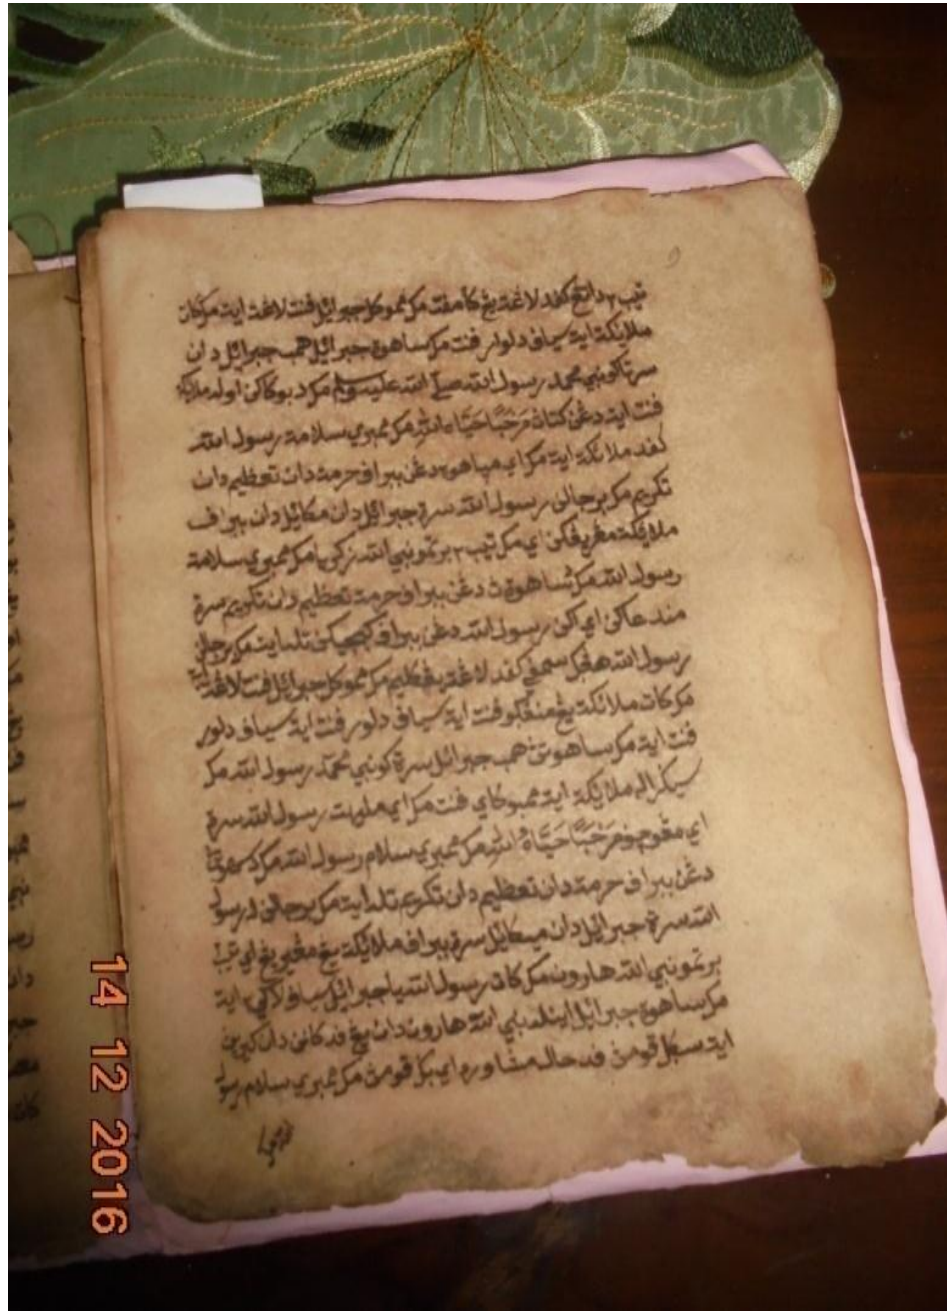 تيب٢ داتڠ كفد لاڠت يڠ كأمفت مك مموكل جبرائيل فنت لاڠت ايت مك كات
ملائكة ايت سياف دلوار فنت مك ساهوة جبرائيل همب جبرائيل دان
سرتاكو نبي محمد رسول الله صلى الله عليه وسلم مك د بوكاكن اوله ملائكة
فنت ايت دڠن كتاث مَرْحَبًا حَيَّاهُ اللهُ مك ممبري سلامة رسول الله
كفد ملائكة ايت مك اي مپاهوة دڠن ببراف حرمة دان تعظيم دان
تكريم مك برجالن رسول الله سرة جبرائيل دان مكائيل دان ببراف
ملائكة مڠيريڠكن اي مك تيب٢ برتمو نبي الله زكريا مك ممبري سلامة
رسول الله مك ساهوة ث دڠن ببراف حرمة تعظيم دان تكريم سرة
مندعاكن اي اكن رسول الله دڠن ببراف كبجيكن تله ايت مك برجالن
رسول الله هڠك سمفي كفد لاڠت يڠ كليم مك مموكل جبرائيل فنت لاڠت
مك كات ملائكة يڠ منڠكو فنت ايت سياف دلور فنت ايت سياف دلور
فنت ايت مك ساهوتث همب جبرائيل سرة كو نبي محمد رسول الله مك
سيكراله ملائكة ايت ممبوكاي فنت مك اي مليهت رسول الله سرة
اي مڠوچف مَرْحَبًا حَيَّاهُ اللهِ مك ممبري سلام رسول الله مك د سهوتث
دڠن ببراف حرمة دان تعظيم دان تكريم تله ايت مك برجالن له رسول
الله سرة جبرائيل دان ميكائيل سرة ببراف ملائكة يڠ مڠيريڠ اي تيب
برتمو نبي الله هارون مك كات رسول الله يا جبرائيل سياف لاكي ايت
مك ساهوة جبرائيل اينله نبي الله هارون دان يڠ فد كانن دان كيرين
ايت سكل قومن فد حال مشاوره اي بك قومن مك ممبري سلام رسول